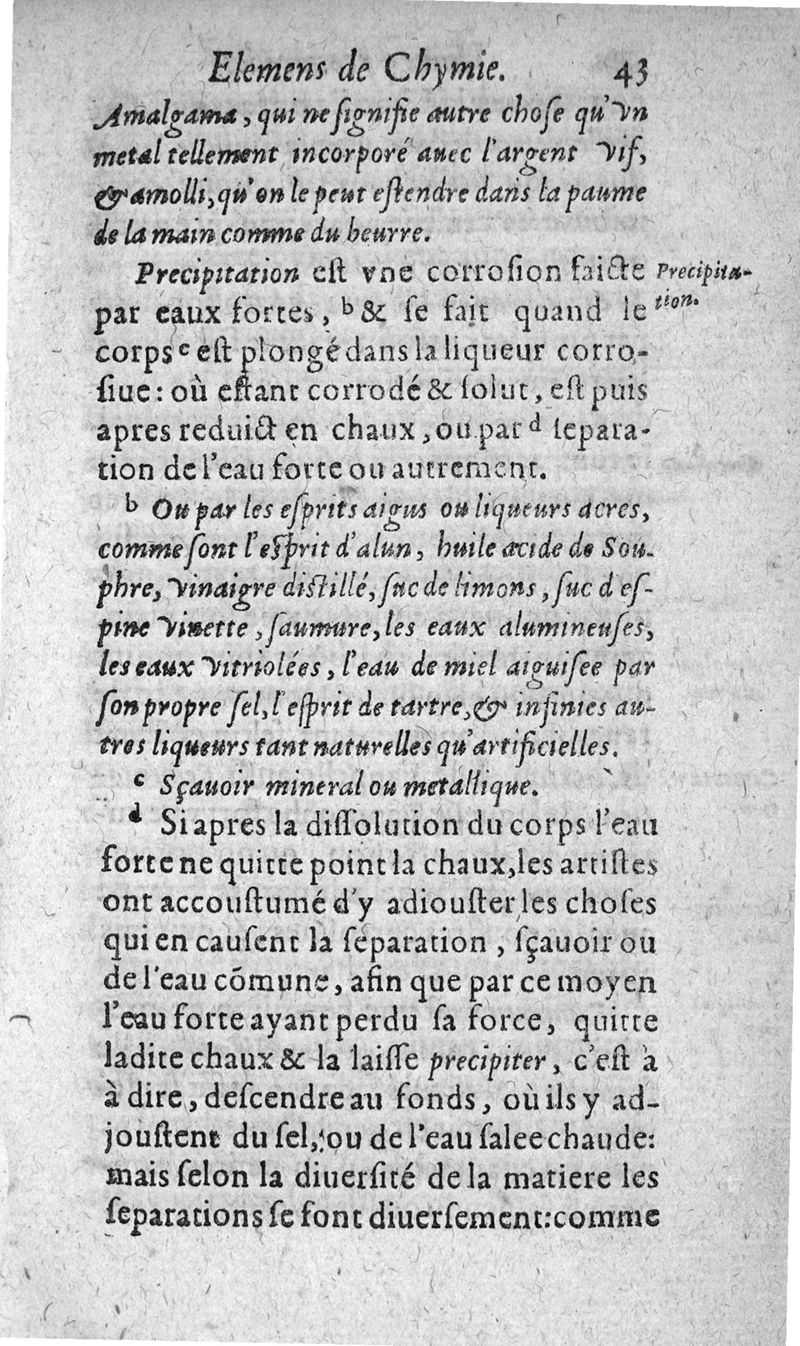 Elemens de Chymie. 43
Amalgama, qui ne ſignifie autre choſe qu'vn
metal tellement incorporé auec l'argent vif,
& amolli, qu'on le peut eſtendre dans la paume
de la main comme du beurre.
Precipitation eſt vne corroſion faicte
par eaux fortes, b & ſe fait quand le
Precipita-
tion.
corps c eſt plongé dans la liqueur corro-
ſiue: où eſtant corrodé & ſolut, eſt puis
apres reduict en chaux, ou par d ſepara-
tion de l'eau forte ou autrement.
b Ou par les eſprits aigus ou liqueurs acres,
comme ſont l'eſprit d'alun, huile acide de Sou-
phre, vinaigre diſtillé, ſuc de limons, ſuc d'eſ-
pine vinette, ſaumure, les eaux alumineuſes,
les eaux vitriolées, l'eau de miel aiguiſee par
ſon propre ſel, l'eſprit de tartre, & infinies au-
tres liqueurs tant naturelles qu'artificielles.
c Sçauoir mineral ou metallique.
d Si apres la diſſolution du corps l'eau
forte ne quitte point la chaux, les artiſtes
ont accouſtumé d'y adiouſter les choſes
qui en cauſent la ſeparation, ſçauoir ou
de l'eau cōmune, afin que par ce moyen
l'eau forte ayant perdu ſa force, quitte
ladite chaux & la laiſſe precipiter, c'eſt à
à dire, deſcendre au fonds, où ils y ad-
jouſtent du ſel, ou de l'eau ſalee chaude:
mais ſelon la diuerſité de la matiere les
ſeparations ſe font diuerſement: comme